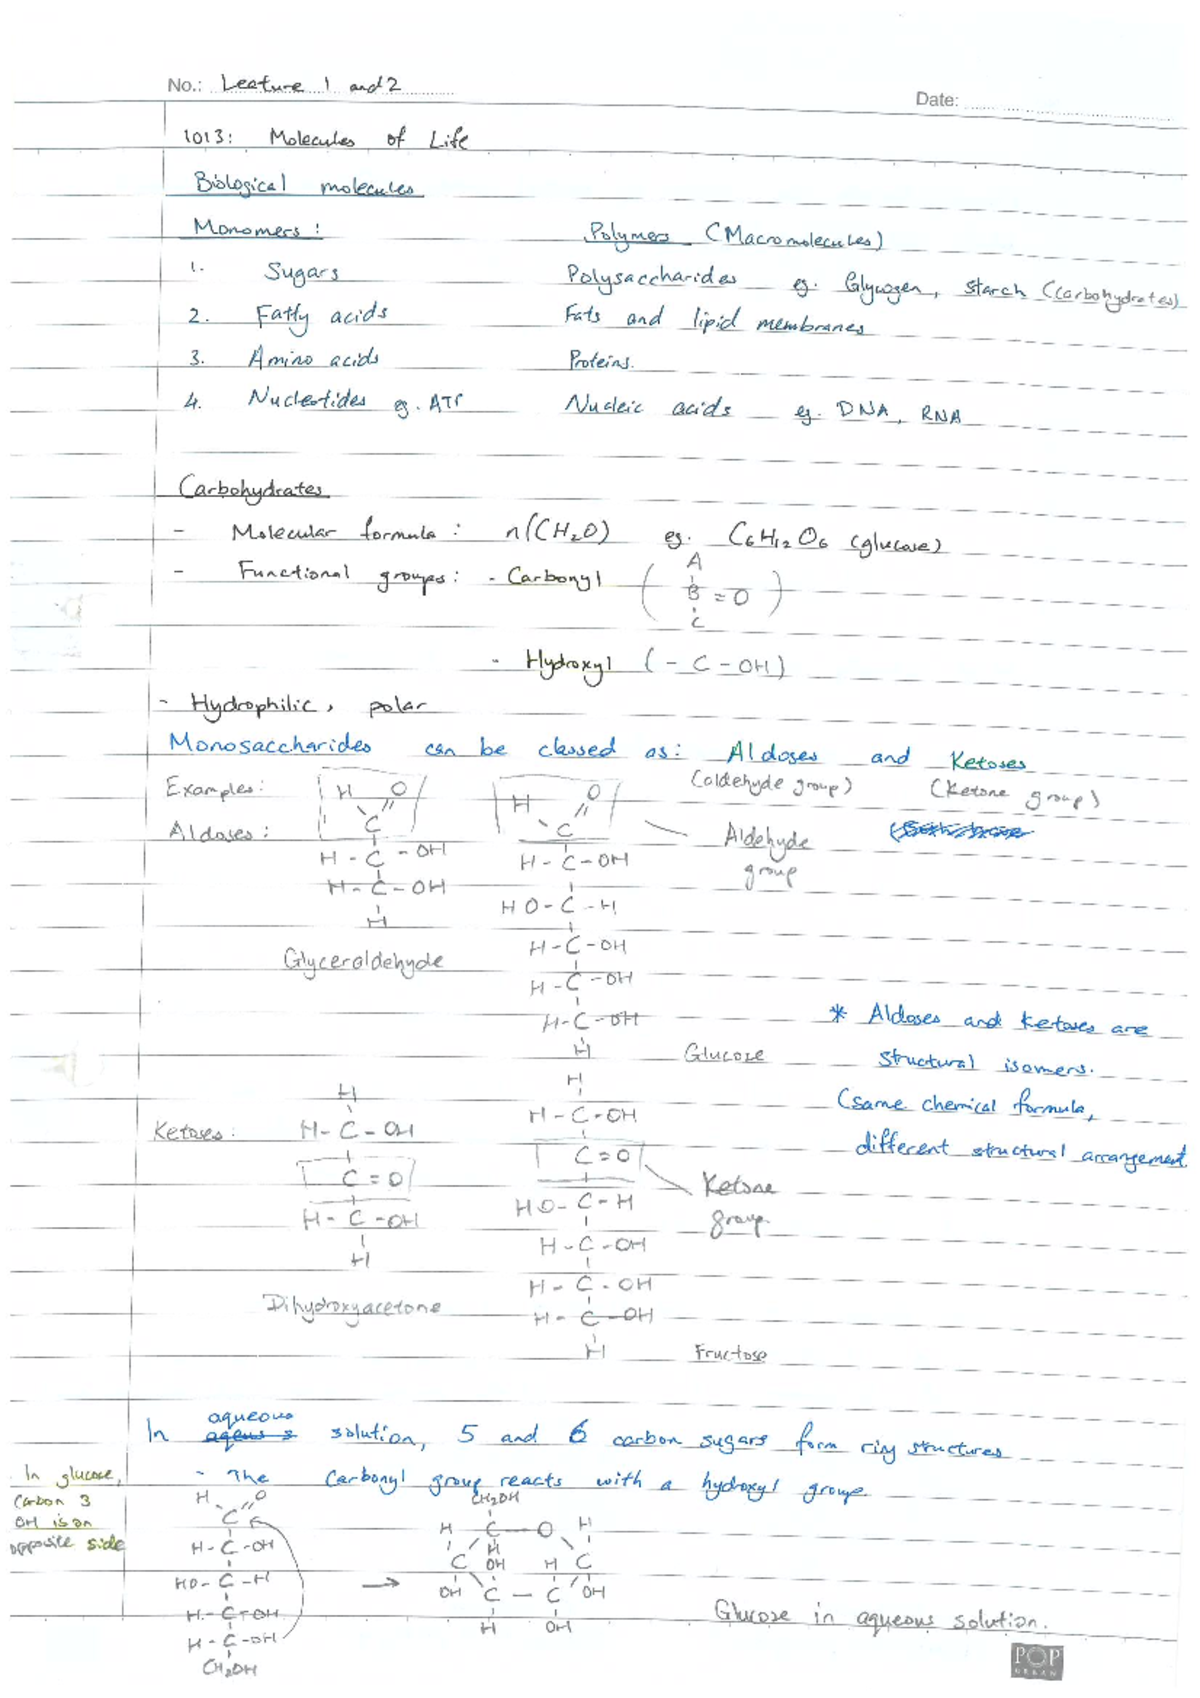 No.: Lecture 1 and 2
Date:
1013: Molecules of Life
Biological molecules
Monomers: Polymers (Macromolecules)
1. Sugars Polysaccharides eg. Glycogen, starch (carbohydrates)
2. Fatty acids Fats and lipid membranes
3. Amino acids Proteins.
4. Nucleotides eg. ATP Nucleic acids eg. DNA, RNA
Carbohydrates
- Molecular formula: n(CH2O) eg. C6H12O6 (glucose)
- Functional groups: - Carbonyl ( A
B = O )
C
- Hydroxyl ( - C - OH )
- Hydrophilic, polar
Monosaccharides can be classed as: Aldoses and Ketoses
Examples: (aldehyde group) (Ketone group)
H O H O
Aldoses: C C Aldehyde
group
H - C - OH H - C - OH
H - C - OH HO - C - H
H H - C - OH
Glyceraldehyde H - C - OH
H - C - OH
H Glucose
* Aldoses and ketoses are
structural isomers.
(same chemical formula,
different structural arrangement
H H
Ketoses: H - C - OH H - C - OH
C = O C = O Ketone
group
H - C - OH HO - C - H
H H - C - OH
Dihydroxyacetone H - C - OH
H - C - OH
H Fructose
In aqueous solution, 5 and 6 carbon sugars form ring structures
- The Carbonyl group reacts with a hydroxyl group
In glucose,
Carbon 3
OH is on
opposite side
H O
C
H - C - OH
HO - C - H
H - C - OH
H - C - OH
CH2OH
→
CH2OH
H C - O H
H
C OH H C
OH C - C OH
H OH
Glucose in aqueous solution.
POP
URBAN